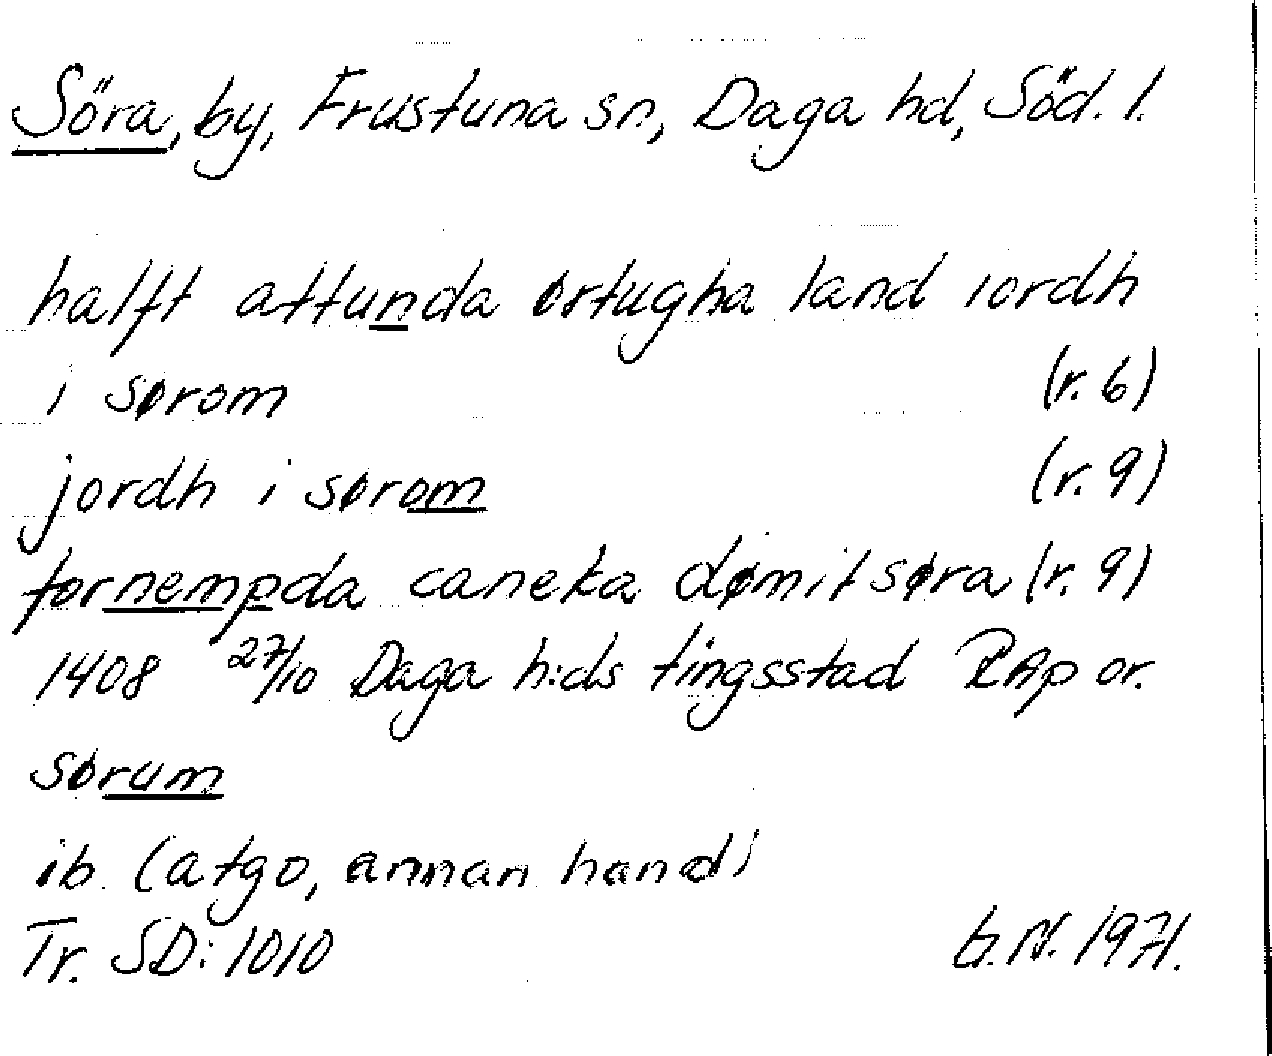 Söra, by, Frustuna sn, Daga hd, Söd. l.
halft attunda ørtugha land iordh
i sørom (r. 6)
jordh i sørom (r. 9)
fornempda caneka dømit søra (r. 9)
1408 27/10 Daga h:ds tingsstad RAp or.
sørum
ib. (atgo, annan hand)
Tr. SD: 1010 G.N. 1971.